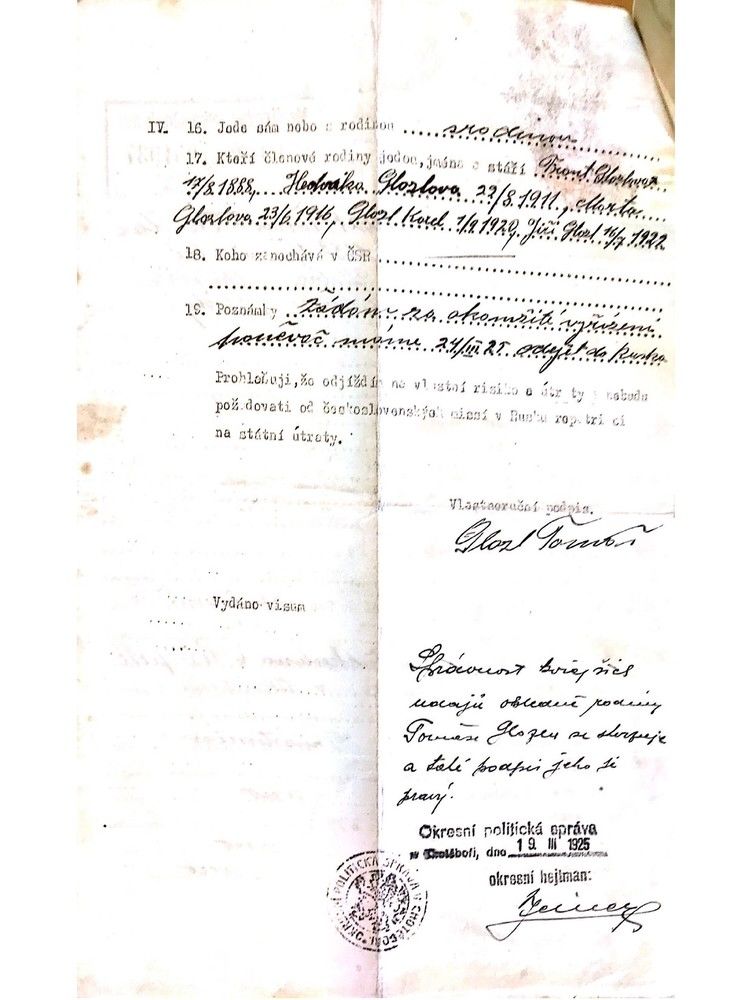 IV. 16. Jede sám nebo s rodinou ..... s rodinou
17. Kteří členové rodiny jedou, jména a stáří Glozlova
17/8.1888, Hedvika Glozlova 22/8.1911, Marta
Glozlova 23/6.1916, Glozl Karel 1/9.1920, Jiří Glozl 16/7 1922
18. Koho zanechává v ČSR
19. Poznámky Žádáme za okamžité vyřízení
poněvač máme 24/III 25 odjet do Ruska
Prohlašuji, že odjíždím na vlastní risiko a útraty a nebudu
požadovati od československých missí v Rusku repatriaci
na státní útraty.
Vlastnoruční podpis.
Glozl Tomáš
Vydáno visum
Správnost
údajů ohledně rodiny
Tomáše se stvrzuje
a také podpis jeho je
pravý.
Okresní politická správa
v Chotěboři, dne 19. III 1925
okresní hejtman:
OKRESNÍ POLITICKÁ SPRÁVA V CHOTĚBOŘI